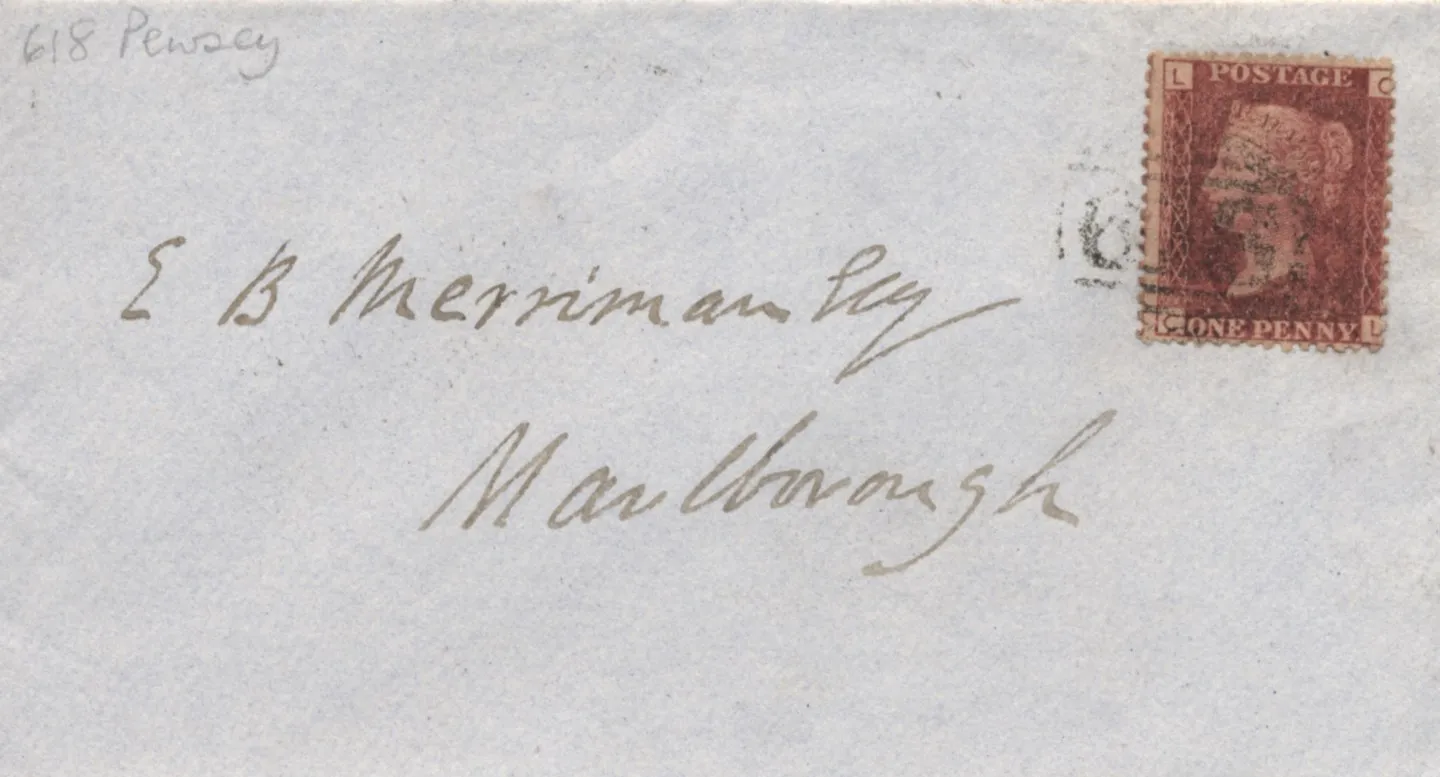 618 Pewsey
L POSTAGE C
E B Merriman Esq
Marlborough
C ONE PENNY. L